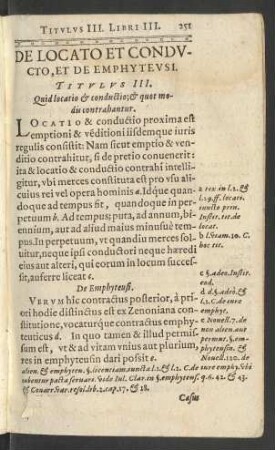 TITVLVS III. LIBRI III. 251
DE LOCATO ET CONDV-
CTO, ET DE EMPHYTEVSI.
TITVLVS III.
Quid locatio & conductio, & quot mo-
dis contrahantur.
LOCATIO & conductio proxima est
emptioni & vēditioni iisdemque iuris
regulis consistit: Nam sicut emptio & ven-
ditio contrahitur, si de pretio conuenerit:
ita & locatio & conductio contrahi intelli-
gitur, vbi merces constituta est pro vsu ali-
cuius rei vel opera hominis a. Idque quan-
doque ad tempus fit, quandoque in per-
petuum b. Ad tempus; puta, ad annum, bi-
ennium, aut ad aliud maius minusúe tem-
pus. In perpetuum, vt quandiu merces sol-
uitur, neque ipsi conductori neque hæredi
eius aut alteri, qui eorum in locum succes-
sit, auferre liceat c.
De Emphyteusi.
VERVM hic contractus posterior, à pri-
ori hodie distinctus est ex Zenoniana con-
stitutione, vocaturque contractus emphy-
teuticus d. In quo tamen & illud permis-
sum est, vt & ad vitam vnius aut plurium,
res in emphyteusin dari possit e.
a tot. in l.1. &
l.2. ff. locati.
iuncto prin.
Instit. tit. de
locat.
b l. etiam. 10. C.
hoc tit.
c §. adeo. Instit.
eod.
d d. §. adeò. &
l.1. C. de iure
emphyt.
e Nouell. 7. de
non alien. aut
permut. §.
emphyteusin. &
Nouell. 120. de
alien. & emphyteu. §. licentiam. iuncta l.1. & l.2. C. de iure emphy. vbi
Casus